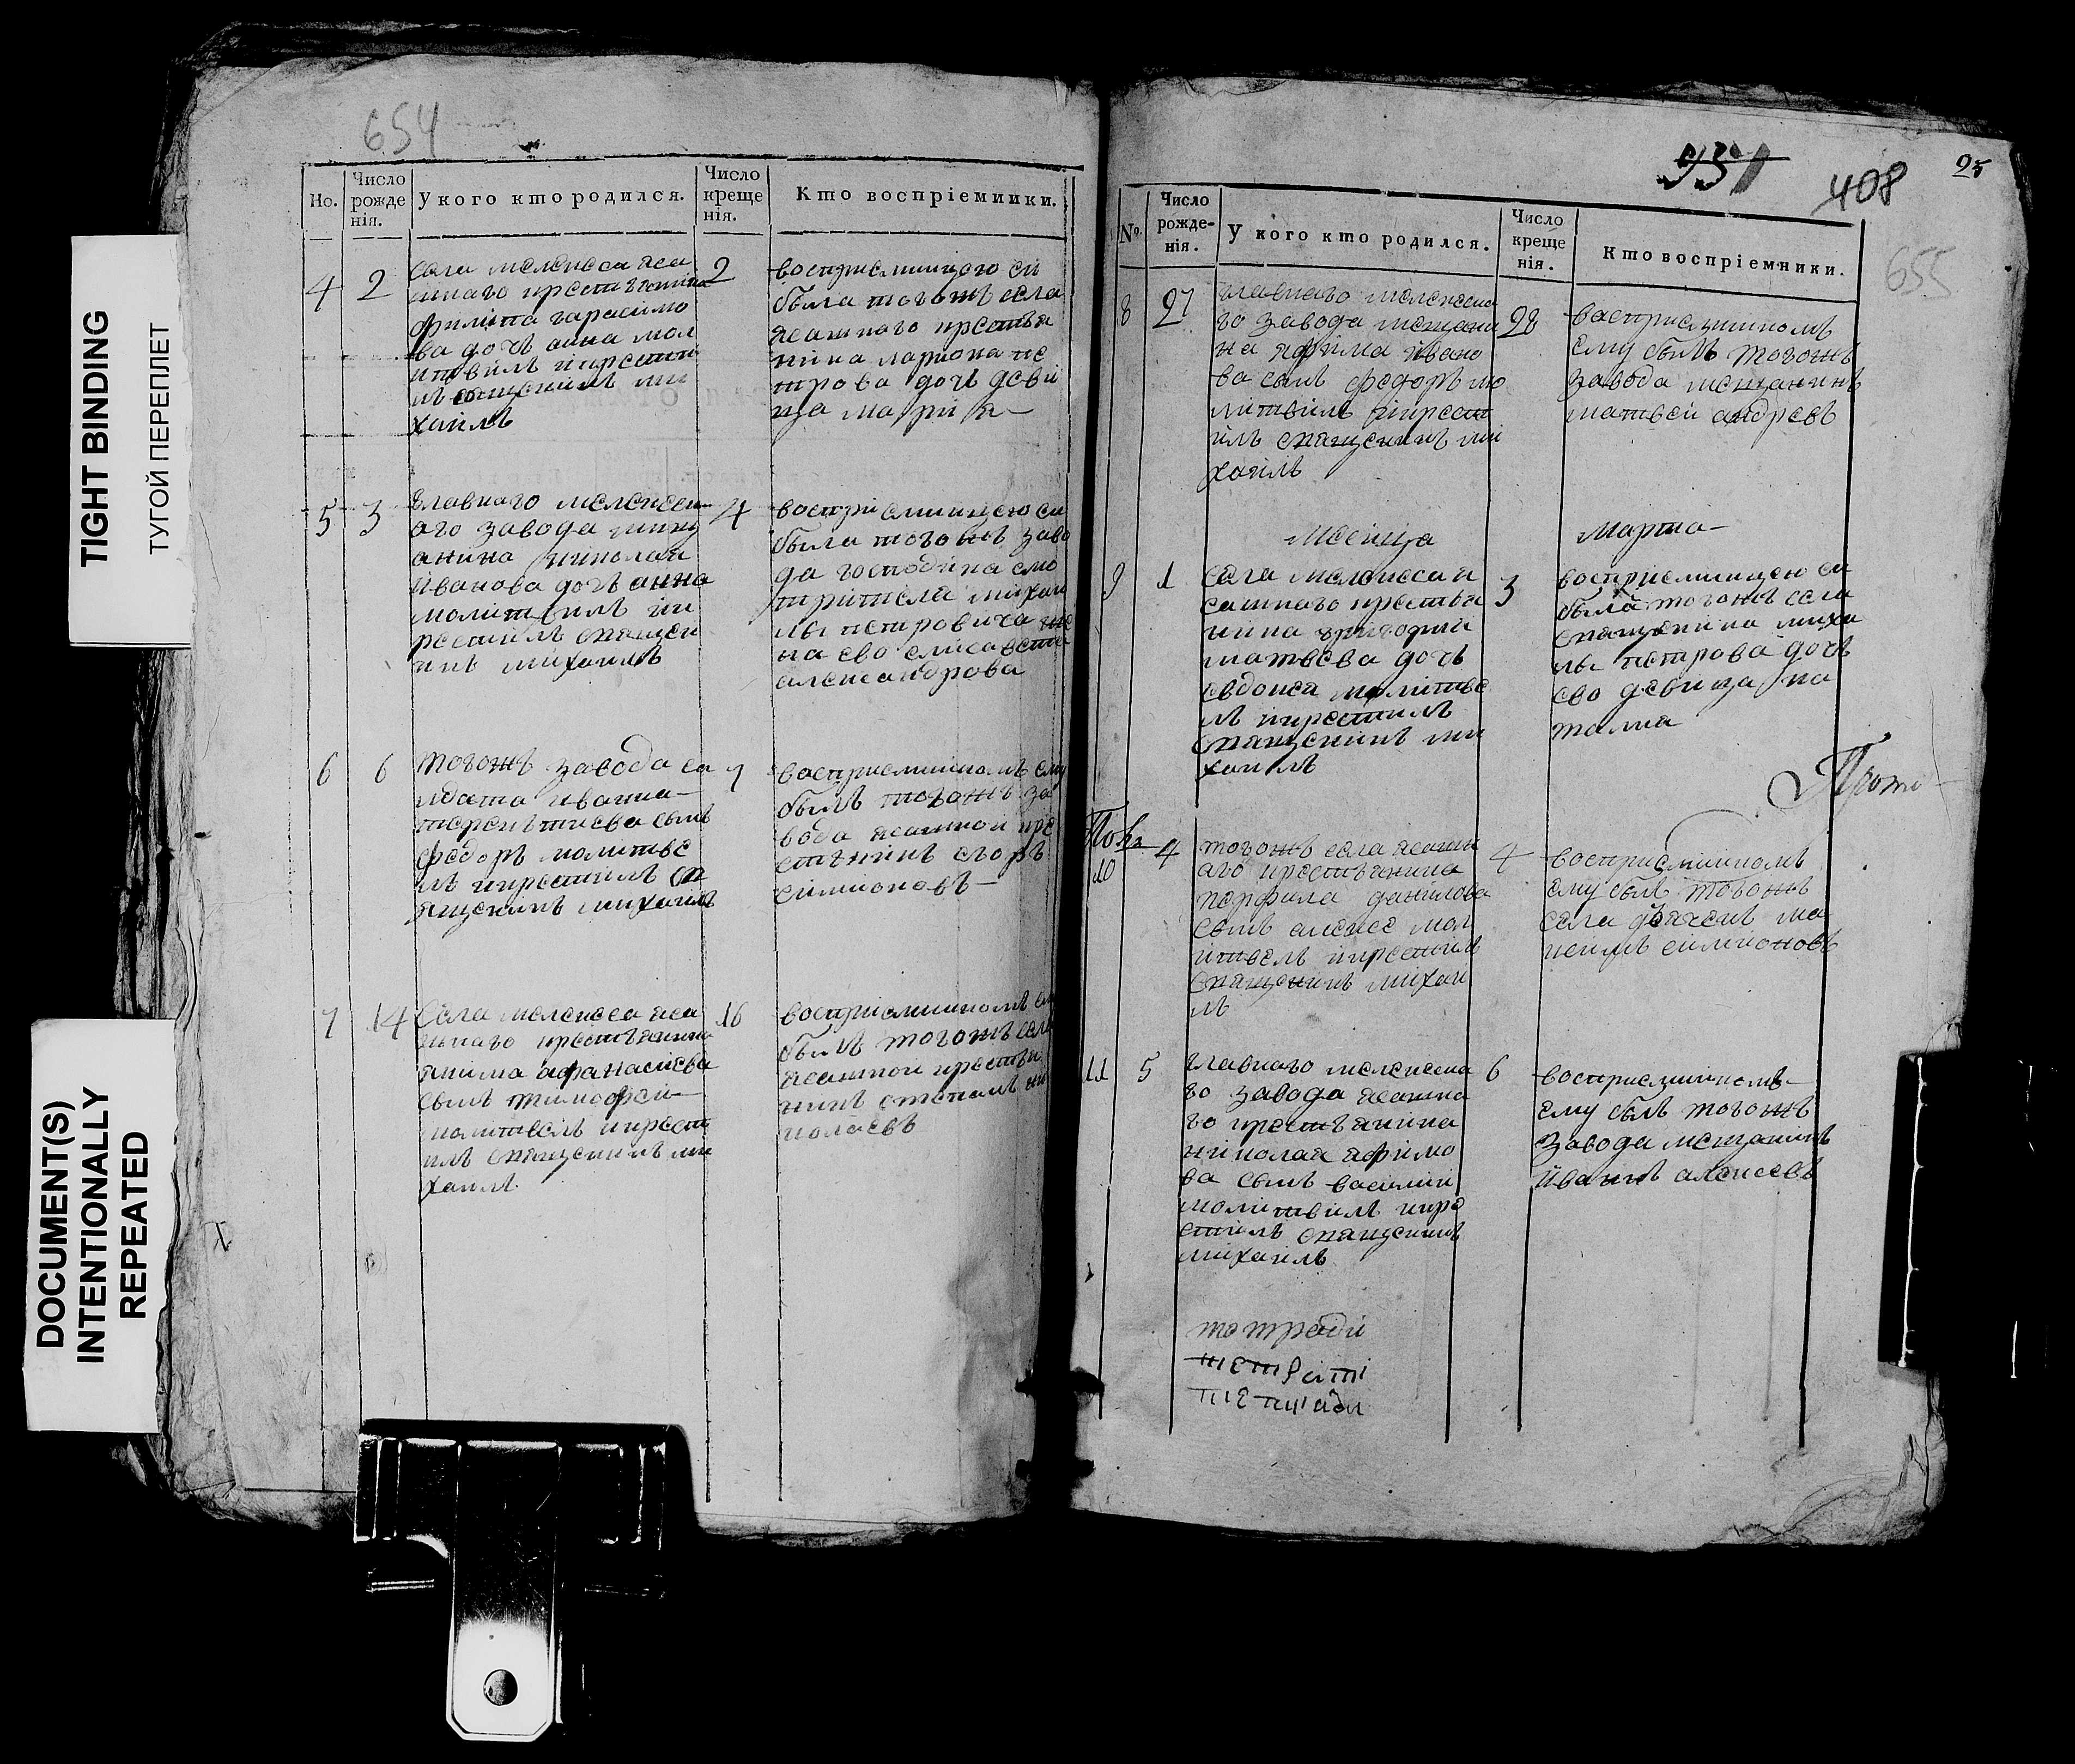 TIGHT BINDING
ТУГОЙ ПЕРЕПЛЕТ
DOCUMENT(S)
INTENTIONALLY
REPEATED
654
Но.
Число
рожде
нія.
У кого кто родился.
Число
креще
нія.
Кто воспріемники.
4
2
села мелекеса яса
шнаго крестьянина
филипа гарасимо
ва дочь анна мол
итвилъ икрести
лъ священикъ ми
хаилъ
2
восприемницею еи
была тогожъ села
ясашнаго крестья
нина лариона пе
трова дочь деви
ца мария
5
3
главнаго мелекеск
аго завода мищ
анина николая
иванова дочь анна
молитвилъ ик
рестилъ священ
икъ михаилъ
4
восприемницею еи
была тогожъ заво
да господина смо
трителя михаи
лы петровича же
на ево елисавета
александрова
6
6
тогожъ завода са
лдата ивана
терентиева сынъ
федоръ молитве
лъ икрестилъ св
ященикъ михаилъ
7
восприемникомъ ему
былъ тогожъ за
вода ясашной кре
стьянинъ егоръ
симионовъ
7
14
Села мелекеса яса
шнаго крестьянина
якима афанасиева
сынъ тимофеи
молитвелъ икрест
илъ священикъ ми
хаилъ
16
восприемникомъ ему
былъ тогожъ села
ясашной крестья
нинъ степанъ ни
колаевъ
931
408
25
655
№.
Число
рожде-
нія.
У кого кто родился.
Число
креще
нія.
Кто воспріемники.
8
27
главнаго мелекеска
го завода мещани
на якима ивано
ва сынъ федоръ мо
литвилъ икрест
илъ священикъ ми
хаилъ
28
восприемникомъ
ему былъ тогожъ
завода мещанинъ
матвеи андревъ
месица
марта
9
1
села мелекеса я
сашнаго крестья
нина григории
матвева дочь
евдокея молитве
лъ икрестилъ
священикъ ми
хаилъ
3
восприемницею еи
была тогожъ села
священика михаи
лы петрова дочь
ево девица на
талиа
Прото
По Кр
10
4
тогожъ села ясашн
аго крестьянина
перфила данилова
сынъ алексе мол
итвелъ икрестилъ
священикъ михаи
лъ
4
восприемникомъ
ему былъ тогожъ
села дьяченъ ма
ксимъ симионовъ
11
5
главнаго мелекеска
го завода ясашна
го крестьянина
николая яфимо
ва сынъ василии
молитвилъ икре
стилъ священикъ
михаилъ
6
восприемникомъ
ему былъ тогожъ
завода мещанинъ
иванъ алексеевъ